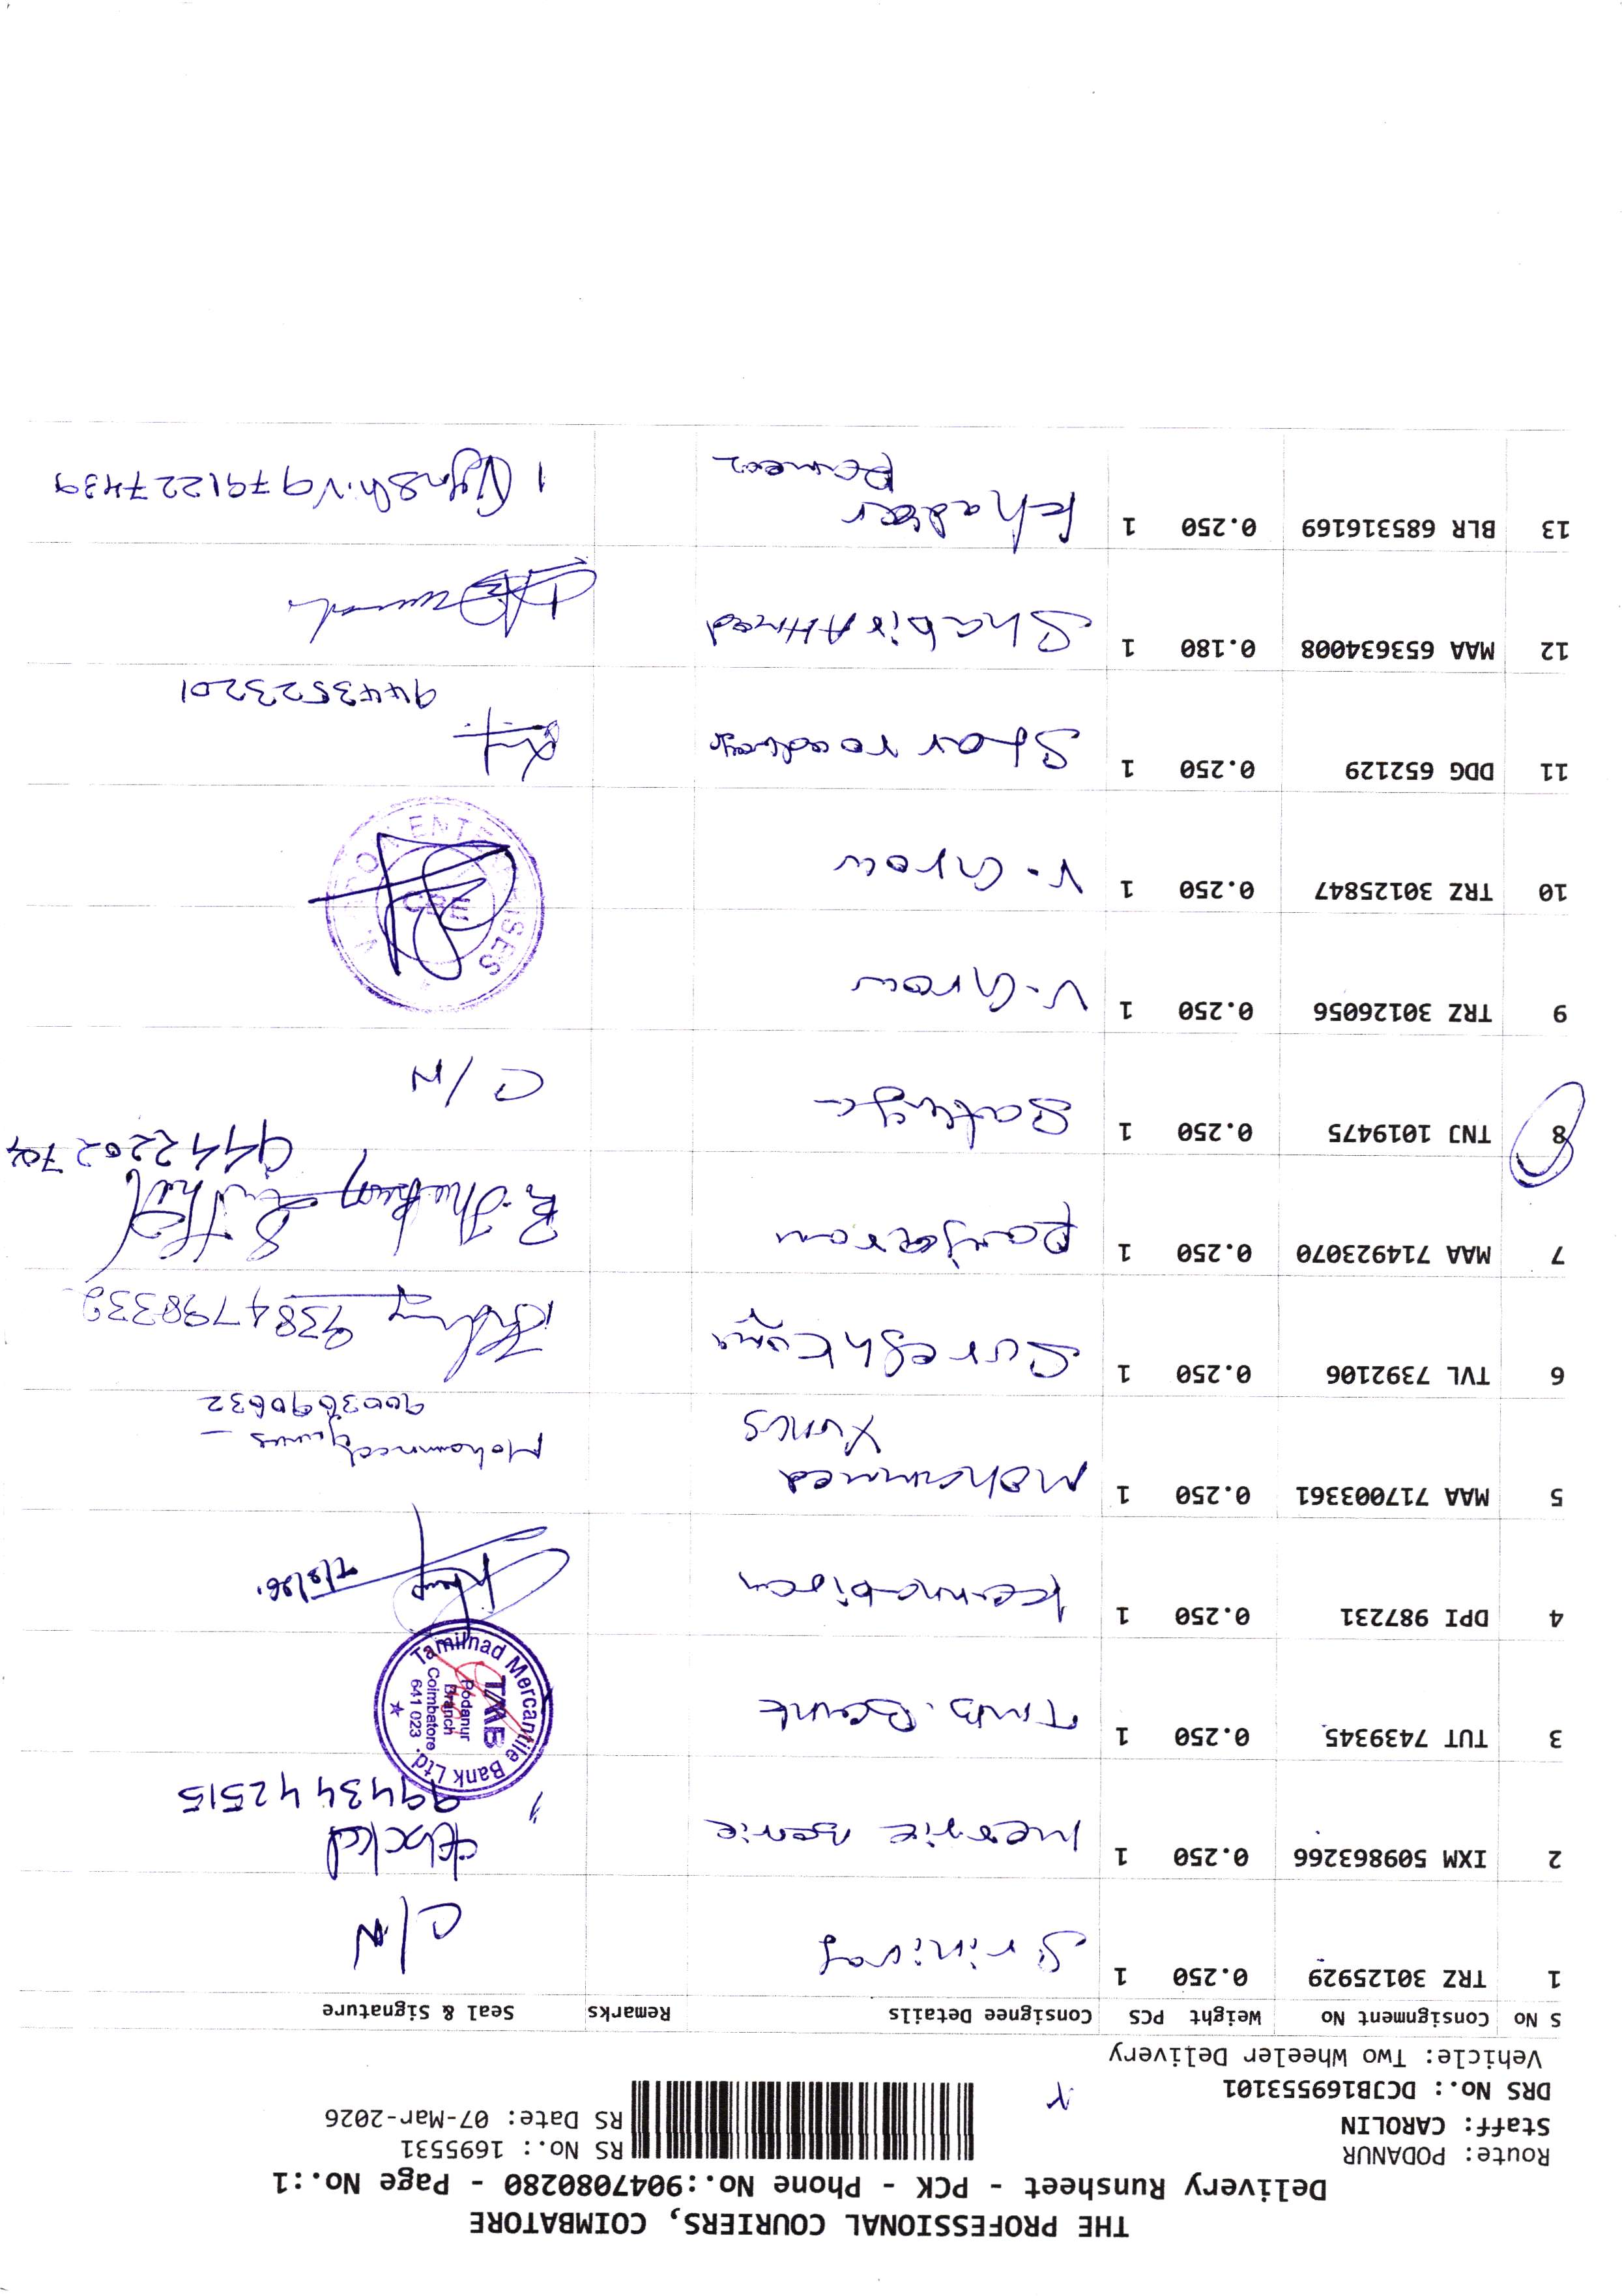 THE PROFESSIONAL COURIERS, COIMBATORE
Delivery Runsheet - PCK - Phone No.:9047080280 - Page No.:1
Route: PODANUR
Staff: CAROLIN
DRS No.: DCJB169553101
Vehicle: Two Wheeler Delivery
RS No.: 1695531
RS Date: 07-Mar-2026
S No Consignment No Weight PCS Consignee Details Remarks Seal & Signature
1 TRZ 30125929 0.250 1 Srinivas C/N
2 IXM 509863266 0.250 1 943442515
3 TUT 7439345 0.250 1 Tmb. Bank
Tamilnad Mercantile Bank Ltd.
TMB
Podanur
Branch
Coimbatore
641 023
4 DPI 987231 0.250 1 7/3/26.
5 MAA 717003361 0.250 1 Mohammed
Yunus
Mohammed Yunus
9003690632
6 TVL 7392106 0.250 1 Sureshkumar 9384798339
7 MAA 714923070 0.250 1
8 TNJ 1019475 0.250 1 Sathya C/N
9 TRZ 30126056 0.250 1 V-Grow
10 TRZ 30125847 0.250 1 V-Grow
ENTERPRISES
CBE
11 DDG 652129 0.250 1 Star roadways
9443523201
12 MAA 653634008 0.180 1 Shabir AHmed
13 BLR 685316169 0.250 1 9791227439